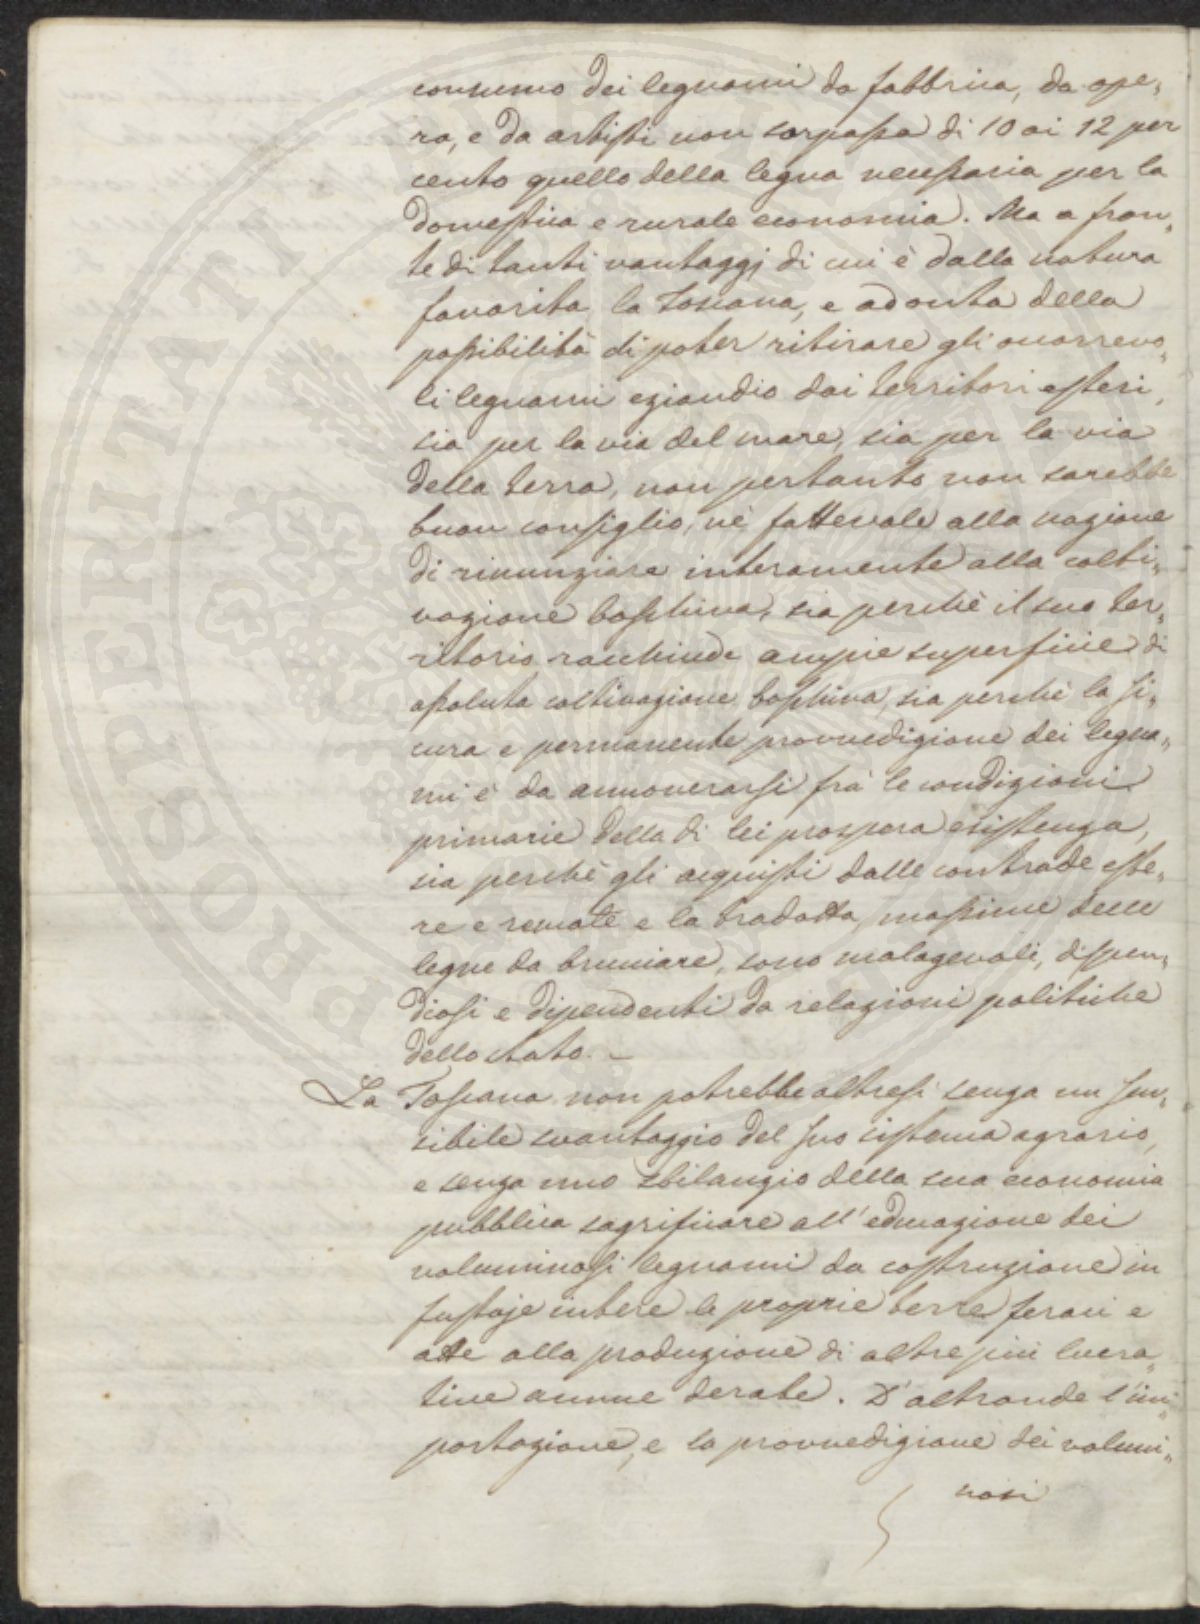 consumo dei legnami da fabbrica, da ope„
ra, e da artisti non sorpassa di 10 ai 12 per
cento quello della legna necessaria per la
domestica e rurale economia. Ma a fron„
te di tanti vantaggj di cui è dalla natura
favorita la Toscana, e ad onta della
possibilità di poter ritirare gli occorrevo„
li legnami eziandio dai territori esteri,
sia per la via del mare, sia per la via
della terra, non pertanto non sarebbe
buon consiglio, nè fattevole alla nazione
di rinunziare interamente alla colti„
vazione boschiva, sia perchè il suo ter„
ritorio racchiude ampie superficie di
assoluta coltivazione boschiva, sia perchè la si„
cura e permanente provvedizione dei legna„
mi è da annoverarsi frà le condizioni
primarie della di lei prospera esistenza,
sia perchè gli acquisti dalle contrade este„
re e remote e la tradotta, massime delle
legne da bruciare, sono malagevoli, dispen„
diosi e dipendenti da relazioni politiche
dello stato. –
La Toscana non potrebbe altresì senza un sen„
sibile svantaggio del suo sistema agrario,
e senza uno sbilanzio della sua economia
pubblica sagrificare all'educazione dei
voluminosi legnami da costruzione in
fustaje intere le proprie terre feraci e
atte alla produzione di altre più lucra„
tive annue derate. D'altronde l'im„
portazione, e la provvedizione dei volumi„
nosi
PROSPERITATI